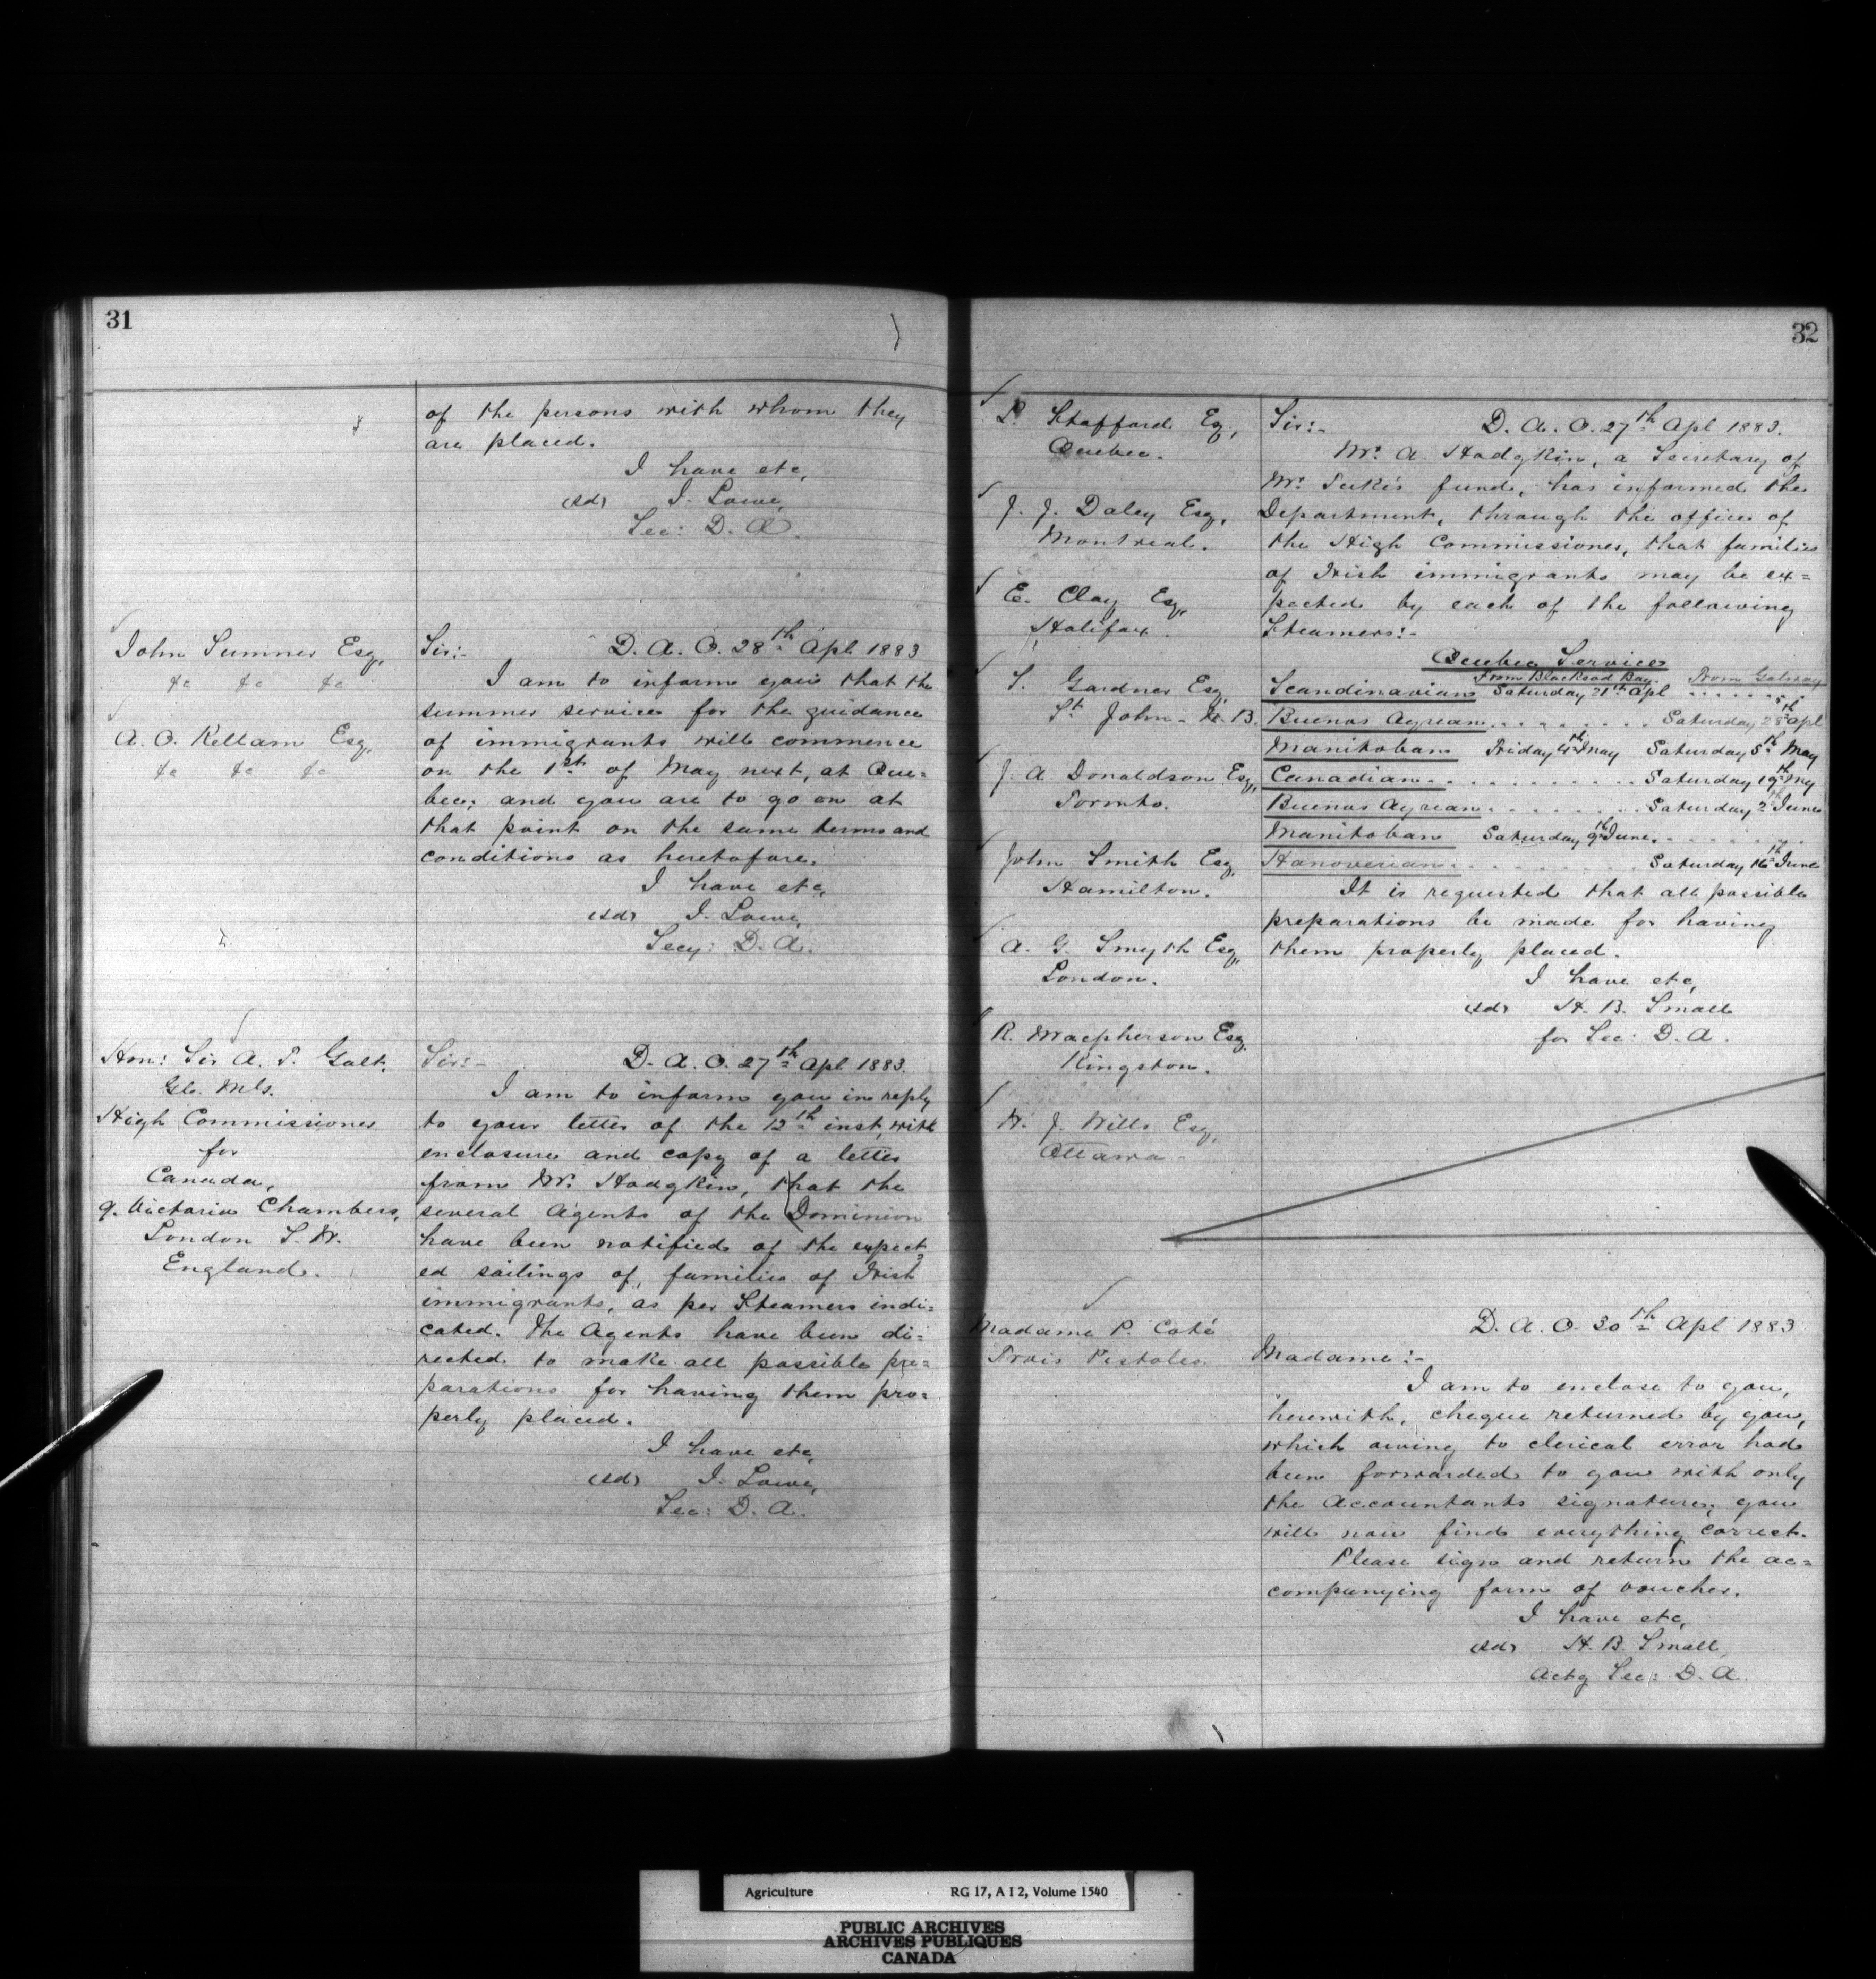 31
of the persons with whom they
are placed.
I have etc,
(sd) J. Lowe,
Sec: D. A.
John Sumner Esq,
&c &c &c
A. O. Kellam Esq,
&c &c &c
Sir:- D. A. O. 28th Apl 1883
I am to inform you that the
summer service for the guidance
of immigrants will commence
on the 1st of May next, at Que=
bec, and you are to go on at
that point on the same terms and
conditions as heretofore.
I have etc,
(sd) J. Lowe,
Secy: D. A.
Hon: Sir A. T. Galt,
High Commissioner
for
Canada,
9. Victoria Chambers,
London S. W.
England.
Sir:- D. A. O. 27th Apl 1883.
I am to inform you in reply
to your letter of the 12th inst, with
enclosure and copy of a letter
from Mr. Hodgkin, that the
several Agents of the Dominion
have been notified of the expect=
ed sailings of, families of Irish
immigrants, as per Steamers indi=
cated. The Agents have been di=
rected to make all possible pre=
parations for having them pro=
perly placed.
I have etc,
(sd) J. Lowe,
Sec: D. A.
32
L. Stafford Esq,
Quebec.
J. J. Daley Esq,
Montreal.
E. Clay Esq,
Halifax.
S. Gardner Esq,
St. John. N. B.
J. A. Donaldson Esq,
Toronto.
John Smith Esq,
Hamilton.
A. G. Smyth Esq,
London.
R. Macpherson Esq,
Kingston.
W. J. Wills Esq,
Ottawa.
Sir:- D. A. O. 27th Apl 1883.
Mr. A. Hodgkin, a Secretary of
Mr. Tuke's fund, has informed the
Department, through the office of
the High Commissioner, that families
of Irish immigrants may be ex=
pected by each of the following
Steamers:-
Quebec Service
From Blacksod Bay. From Galway
Scandinavian Saturday 21st Apl ......
Buenos Ayrean ........ Saturday 28th Apl
Manitoban Friday 4th May Saturday 5th May
Canadian .......... Saturday 19th My
Buenos Ayrean ........ Saturday 2nd June
Manitoban Saturday 9th June .......
Hanoverian ........ Saturday 16th June
It is requested that all possible
preparations be made for having
them properly placed.
I have etc,
(sd) H. B. Small
for Sec: D. A.
Madame P. Coté
Trois Pistoles.
D. A. O. 30th Apl 1883
Madame:-
I am to enclose to you,
herewith, cheque returned by you,
which owing to clerical error had
been forwarded to you with only
the Accountants signature, you
will now find everything correct.
Please sign and return the ac=
companying form of voucher.
I have etc,
(sd) H. B. Small,
Actg Sec: D. A.
Agriculture RG 17, A I 2, Volume 1540
PUBLIC ARCHIVES
ARCHIVES PUBLIQUES
CANADA